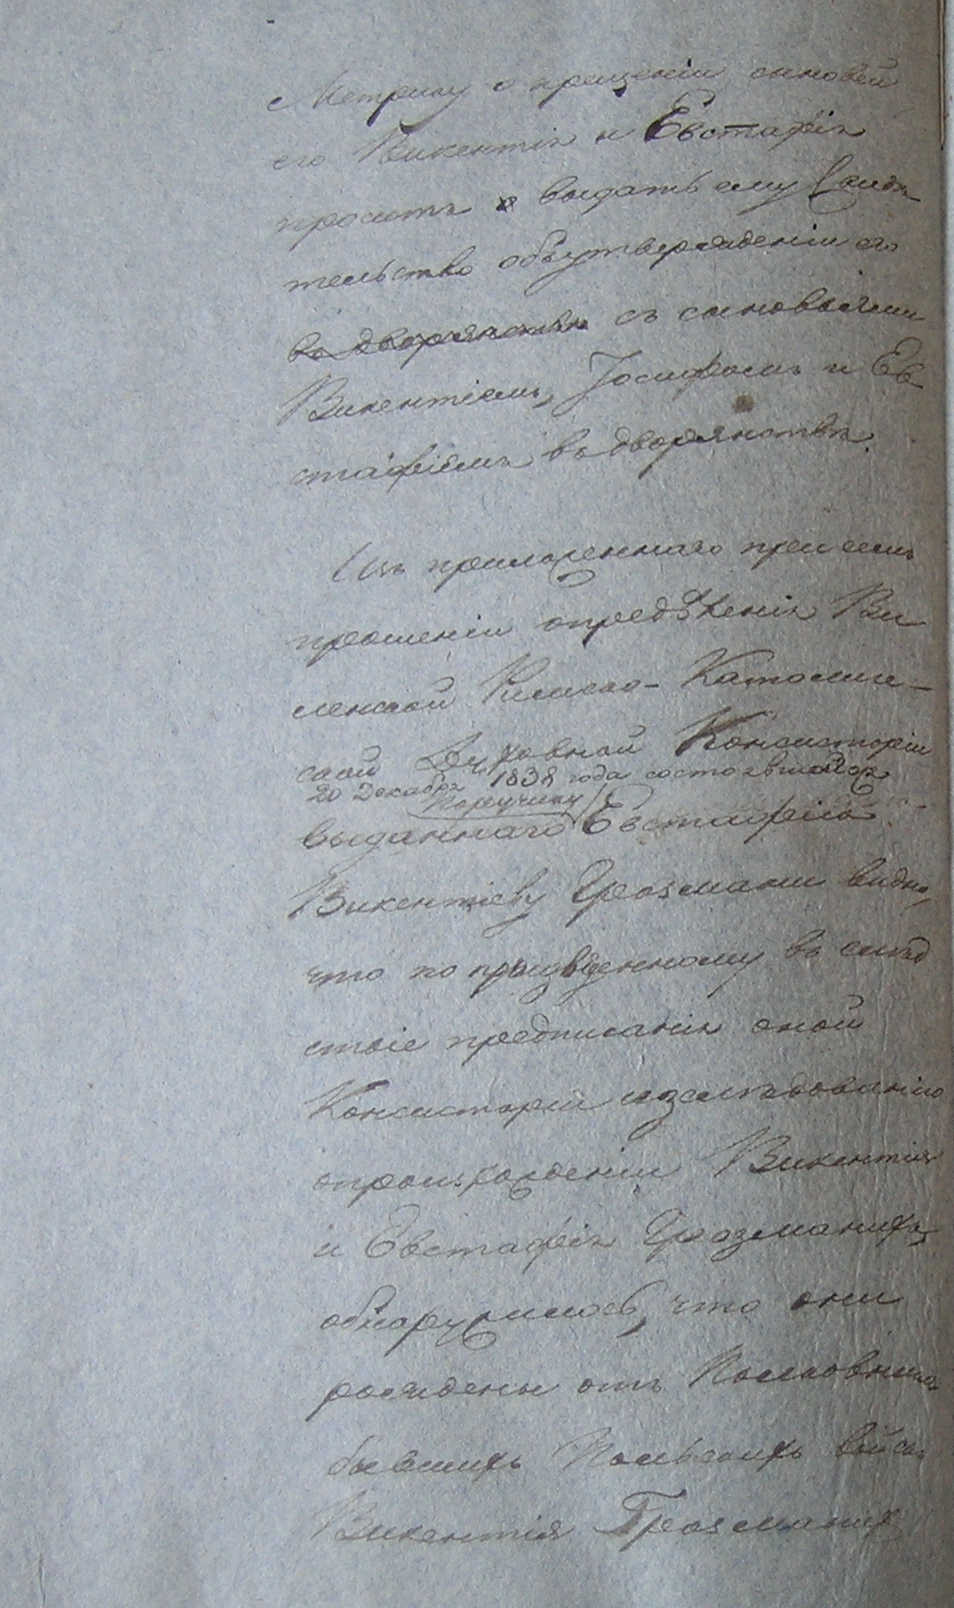 Метрику о крещеніи сыновей
его Викентія и Евстафія
проситъ выдать ему Свидѣ
тельство объ утвержденіи его
въ дворянствѣ съ сыновьями
Викентіемъ, Іосифомъ и Ев-
стафіемъ въ дворянствѣ.
Изъ приложеннаго при семъ
прошеніи опредѣленія Ви
ленской Римско-Католиче-
ской Духовной Консисторіи
20 Декабря 1838 года состоявшагося
Поручику
выданнаго Евстафію
Викентіеву Грозмани видно,
что по произведенному въ слѣд
ствіе предписанія оной
Консисторіи изслѣдованію
о происхожденіи Викентія
и Евстафія Грозманихъ,
обнаружилось, что они
рождены отъ Полковника
бывшихъ Польскихъ войскъ
Викентія Грозмани